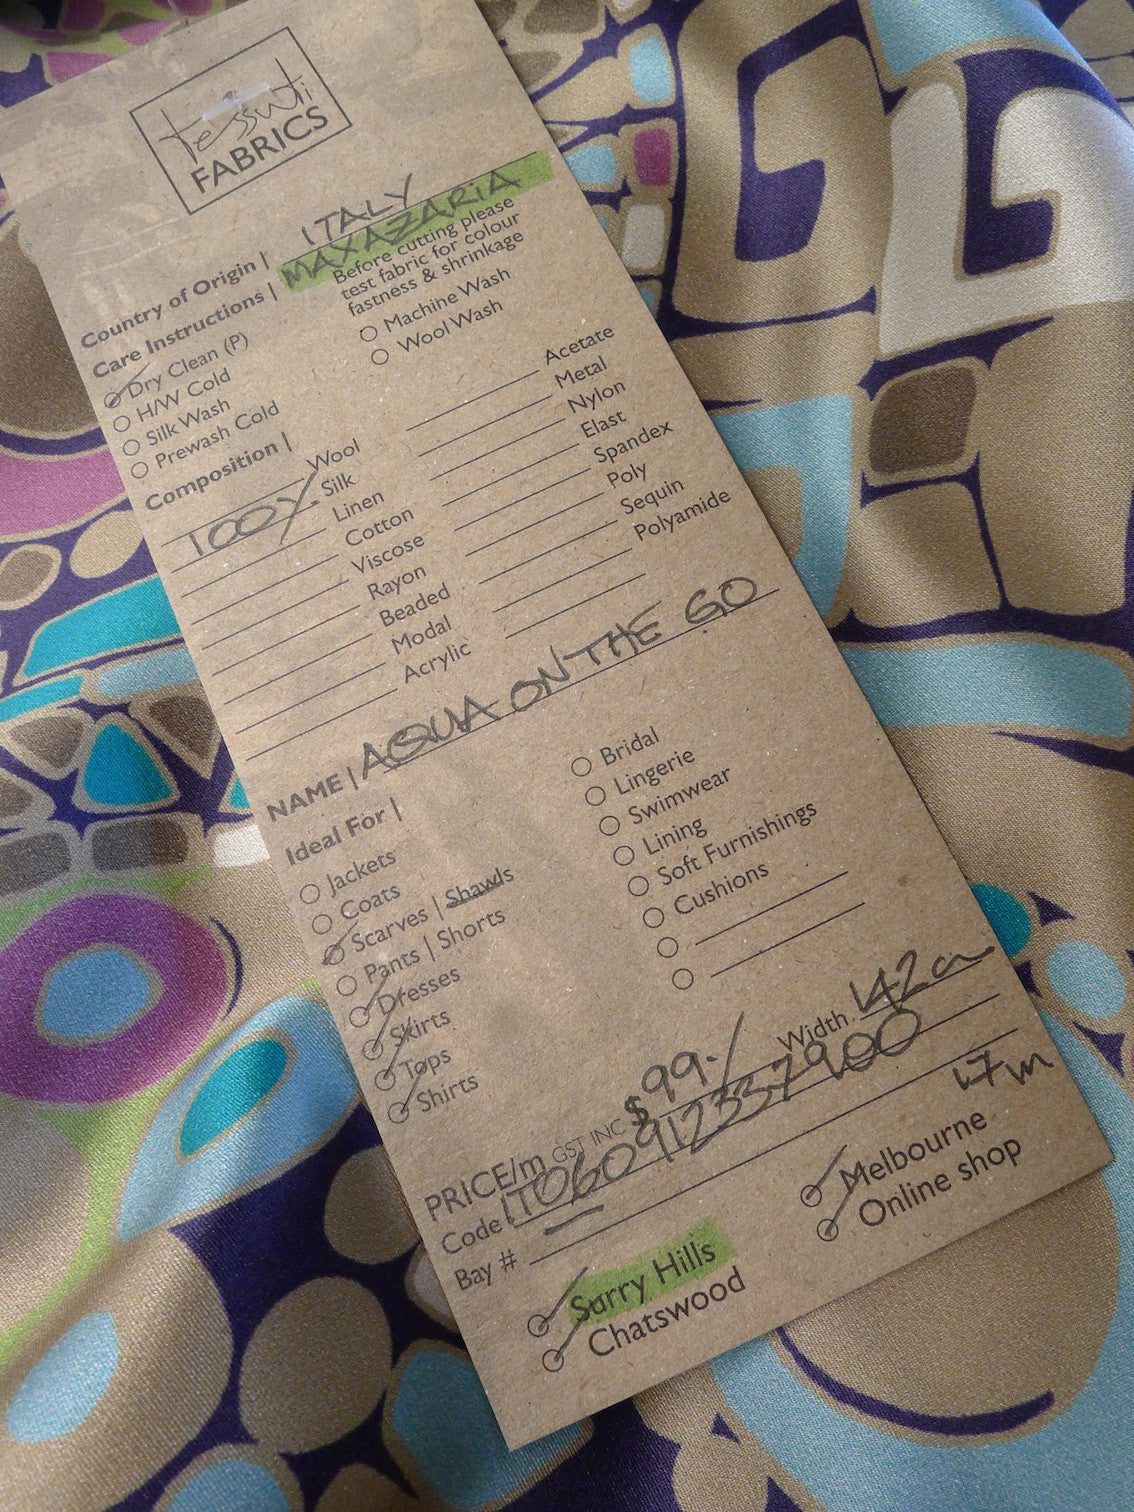 tessuti
FABRICS
Country of Origin | ITALY
Care Instructions | MAXAZARIA
Before cutting please
test fabric for colour
fastness & shrinkage
Dry Clean (P)
H/W Cold
Silk Wash
Prewash Cold
Machine Wash
Wool Wash
Composition |
Wool
100% Silk
Linen
Cotton
Viscose
Rayon
Beaded
Modal
Acrylic
Acetate
Metal
Nylon
Elast
Spandex
Poly
Sequin
Polyamide
NAME | AQUA ON THE GO
Ideal For |
Jackets
Coats
Scarves | Shawls
Pants | Shorts
Dresses
Skirts
Tops
Shirts
Bridal
Lingerie
Swimwear
Lining
Soft Furnishings
Cushions
PRICE/m GST INC $99.- Width 142cm
Code
Bay #
17m
Surry Hills
Chatswood
Melbourne
Online shop